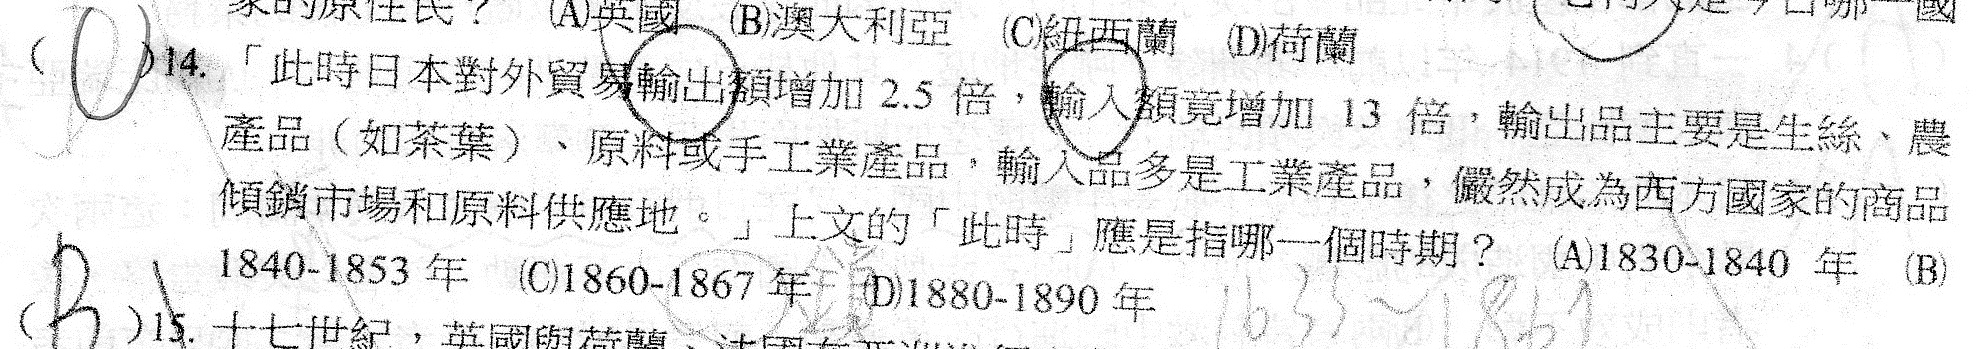 家的原住民？ (A)英國 (B)澳大利亞 (C)紐西蘭 (D)荷蘭
(D)14.「此時日本對外貿易輸出額增加 2.5 倍，輸入額竟增加 13 倍，輸出品主要是生絲、農
產品（如茶葉）、原料或手工業產品，輸入品多是工業產品，儼然成為西方國家的商品
傾銷市場和原料供應地。」上文的「此時」應是指哪一個時期？ (A)1830-1840 年 (B)
1840-1853 年 (C)1860-1867 年 (D)1880-1890 年
鎖 1633~1867
(B)15. 十七世紀，英國與荷蘭、法國在亞洲進行